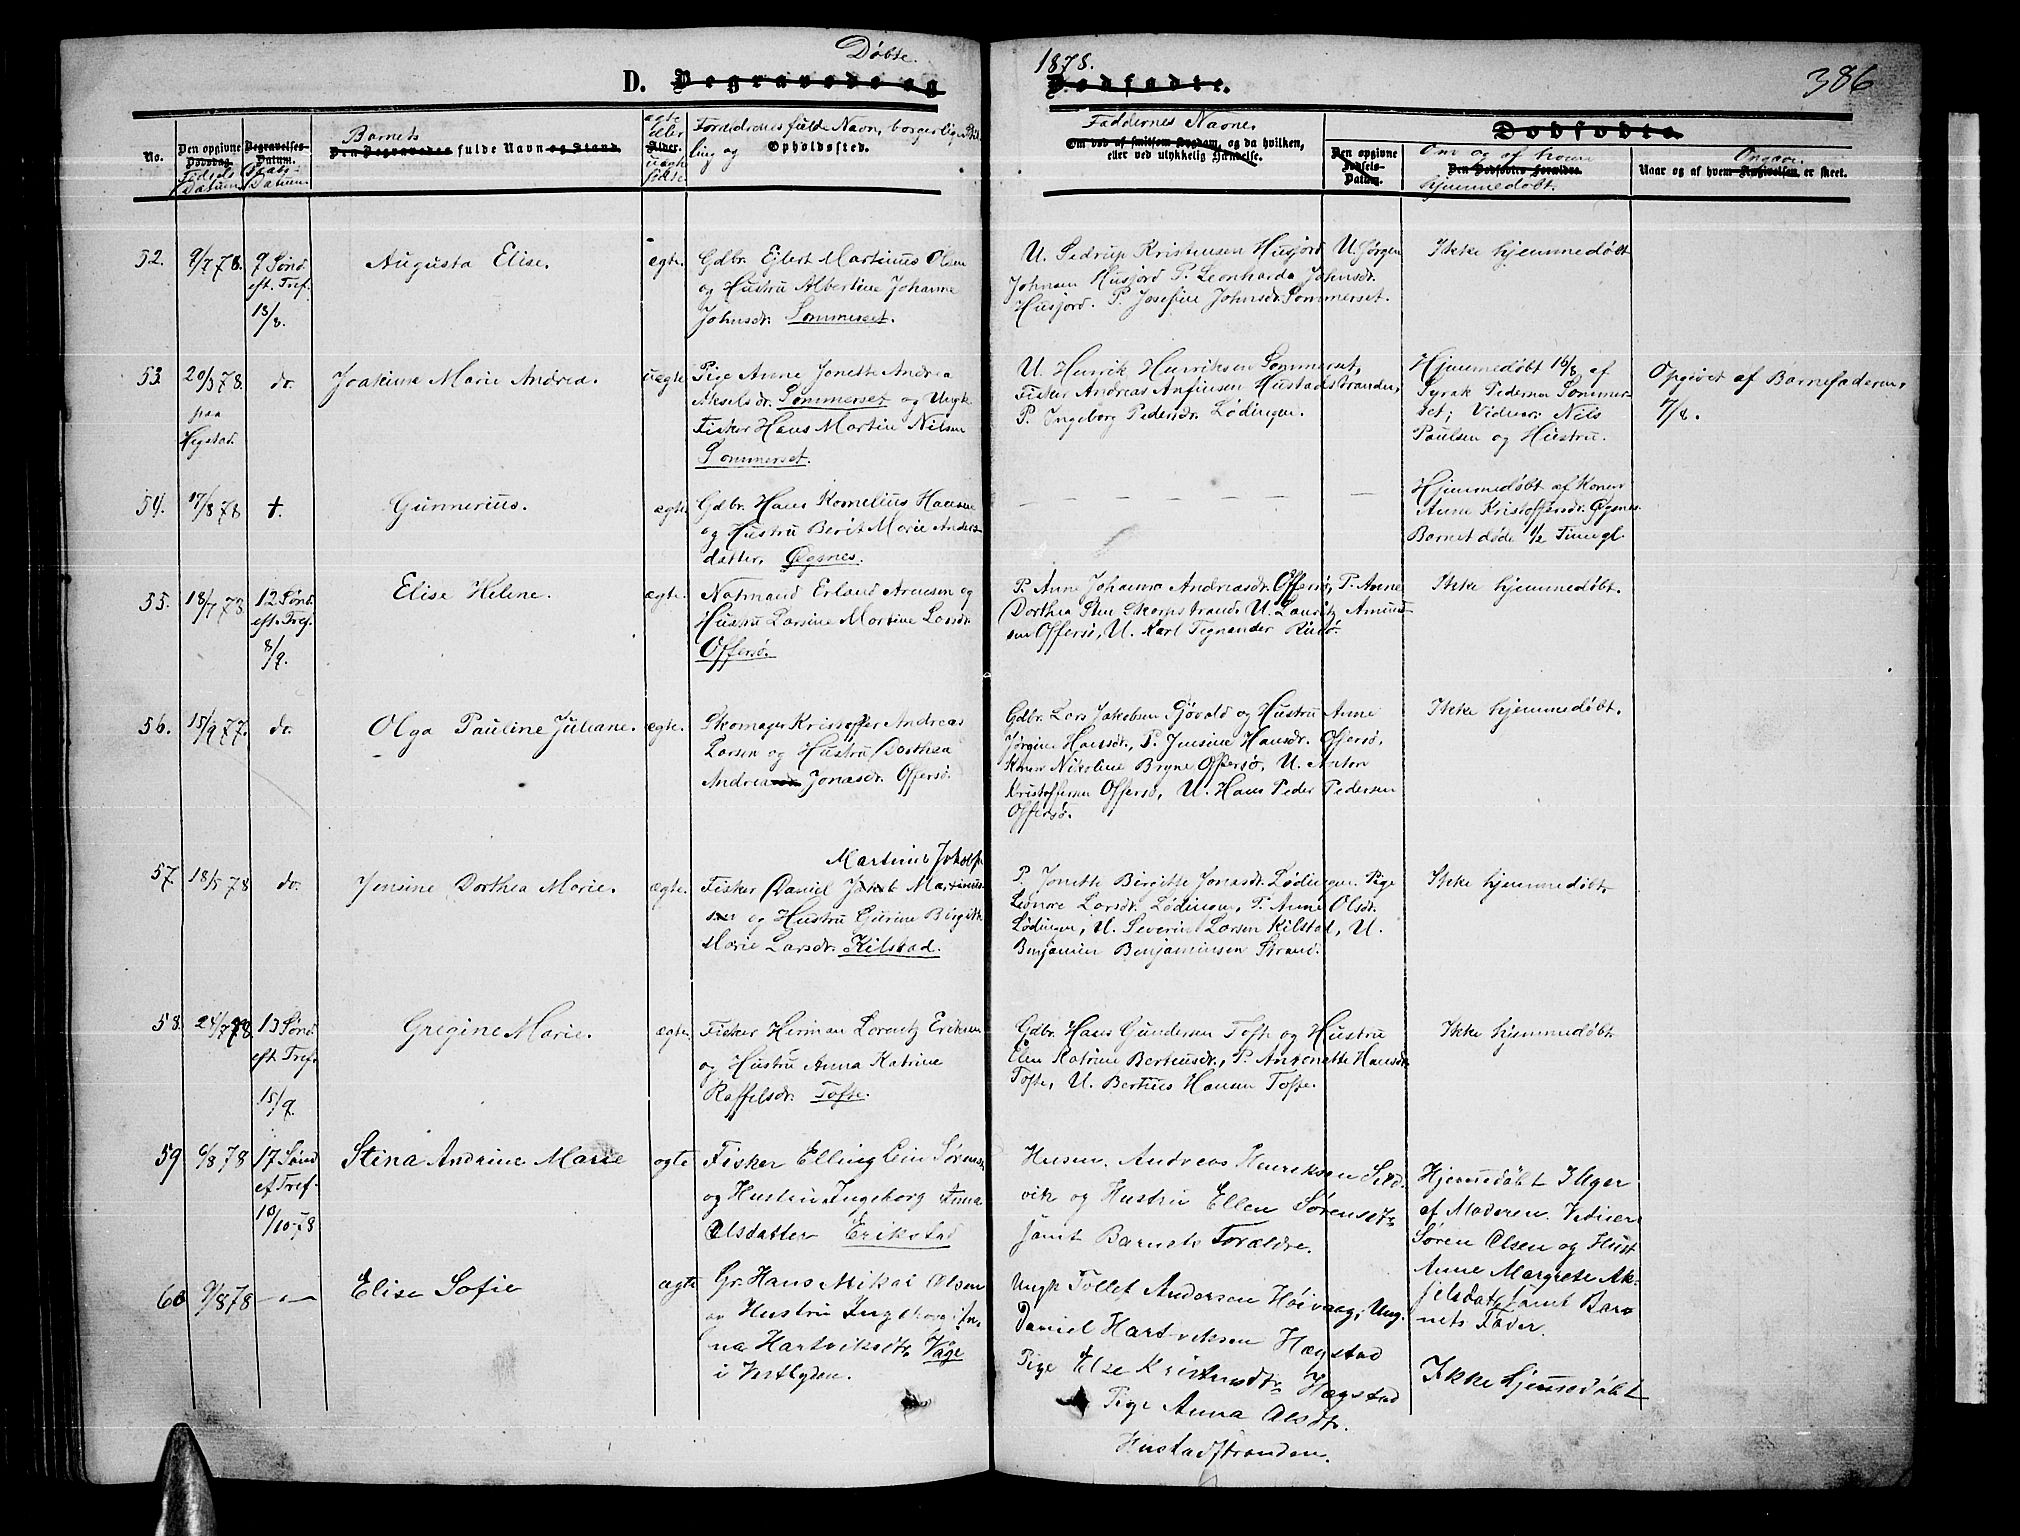 Døbte. 1878.
D. Begravede og Dødfødte. 386
No.
Den opgivne Dødsdag. Fødsels Datum
Begravelses-Datum. Daabs-Datum.
Barnets
Den Begravedes fulde Navn og Stand.
ægte eller uægte født
Alder.
Forældrenes fulde Navn, borgerlige Stilling og Opholdssted.
Faddernes Navne.
Om ved af smitsom Sygdom, og da hvilken, eller ved ulykkelig Hændelse.
Dødfødte.
Den opgivne Fødsels-Datum.
Om og af hvem hjemmedøbt.
Den Dødfødtes Forældre.
Naar og af hvem Angivelsen er skeet.
52. 9/7 78. 9 Sønd. eft. Tref. 18/8.
Augusta Elise.
ægte.
Gdbr. Ejlert Martinus Olsen
og Hustru Albertine Johanne
Johnsdr. Sommerset.
U. Sedrup Kristensen Husjord U. Jørgen
Johnsen Husjord P. Leonharda Johnsdr.
Husjord. P. Josefine Johnsdr. Sommerset.
Ikke hjemmedøbt
53. 20/3 78. paa Hegstad.
do.
Joakima Marie Andrea.
uægte
Pige Anne Jonette Andrea
Akselsdr. Sommerset og Ungk.
Fisker Hans Martin Nilsen
Sommerset.
U. Henrik Henriksen Sommerset,
Fisker Andreas Anfinsen Hustadstranden,
P. Ingeborg Pedersdr. Lødingen.
Hjemmedøbt 16/8 af
Syrak Pedersen Sommer-
set; Vidner: Nils
Paulsen og Hustru.
Opgivet af Barnefaderen,
7/8.
54. 17/8 78 +.
Gunnerius.
ægte.
Gdbr. Hans Kornelius Hansen
og Hustru Berit Marie Anders-
datter, Øgsnes.
Hjemmedøbt af Konen
Anne Kristoffersdr. Øgsnes.
Barnet døde 1/2 Time gl.
55. 18/7 78 12 Sønd. eft. Tref. 8/9.
Elise Helene.
ægte.
Natmand Erland Arnesen og
Hustru Larsine Martine Larsdr.
Offersø.
P. Anne Johanna Andreasdr. Offersø, P. Anne
Dorthea Sten Skarpstrand, U. Lauritz Amund-
sen Offersø, U. Karl Tegnander Risø.
Ikke hjemmedøbt.
56. 15/9 77. do.
Olga Pauline Juliane.
ægte.
Skomager Kristoffer Andreas
Larsen og Hustru Dorthea
Andrea Jonasdr. Offersø.
Gdbr. Lars Jakobsen Gjövald og Hustru Anne
Jørgine Hansdr., P. Jensine Hansdr. Offersø,
Konen Nikoline Bryne Offersø, U. Anton
Kristoffersen Offersø, U. Hans Peder Pedersen
Offersø.
Ikke hjemmedøbt.
57. 18/5 78 do.
Jensine Dorthea Marie.
ægte.
Fisker Daniel Jakob Martinus-
sen og Hustru Gurine Birgitte
Marie Larsdr. Kilstad.
P. Jonette Birgitte Jonasdr. Lødingen. Pige
Leonore Larsdr. Lødingen, P. Anne Olsdr.
Lødingen, U. Severin Larsen Kilstad, U.
Benjamin Benjaminsen Strand.
Ikke hjemmedøbt.
58. 24/7 78. 13 Sønd. eft. Tref. 15/9.
Gregine Marie.
ægte.
Fisker Herman Lorentz Eriksen
og Hustru Anna Katrine
Raffelsdr. Tofte.
Gdbr. Hans Gundersen Tofte og Hustru
Elen Katrine Berteusdr., P. Antonette Hansdr.
Tofte, U. Berteus Hansen Tofte.
Ikke hjemmedøbt.
59 6/8 78 17 Sønd ef Tref. 13/10-78
Stina Andrine Marie
ægte
Fisker Elling Sørens
og Hustru Ingeborg Anna
Olsdatter Erikstad
Husm. Andreas Henriksen Sild-
vik og Hustru Ellen Sørensdtr
samt Barnets Forældre.
Hjemmedøbt
af Moderen. Vidner
Søren Olsen og Hust
Anne Margrete Ak-
selsdatr samt Bar-
nets Fader.
60 9/8 78
Elise Sofie
ægte
Gr. Hans Mikal Olsen
og Hustru Ingeborg An-
na Hartviksdtr Våge
i Vestbyden.
Ungk Tollef Andersen Höivaag, Ung.
Daniel Hartviksen Hægstad
Pige Else Kristensdtr. Hægstad
Pige Anna Olsdtr.
Hustadstranden.
Ikke hjemmedøbt